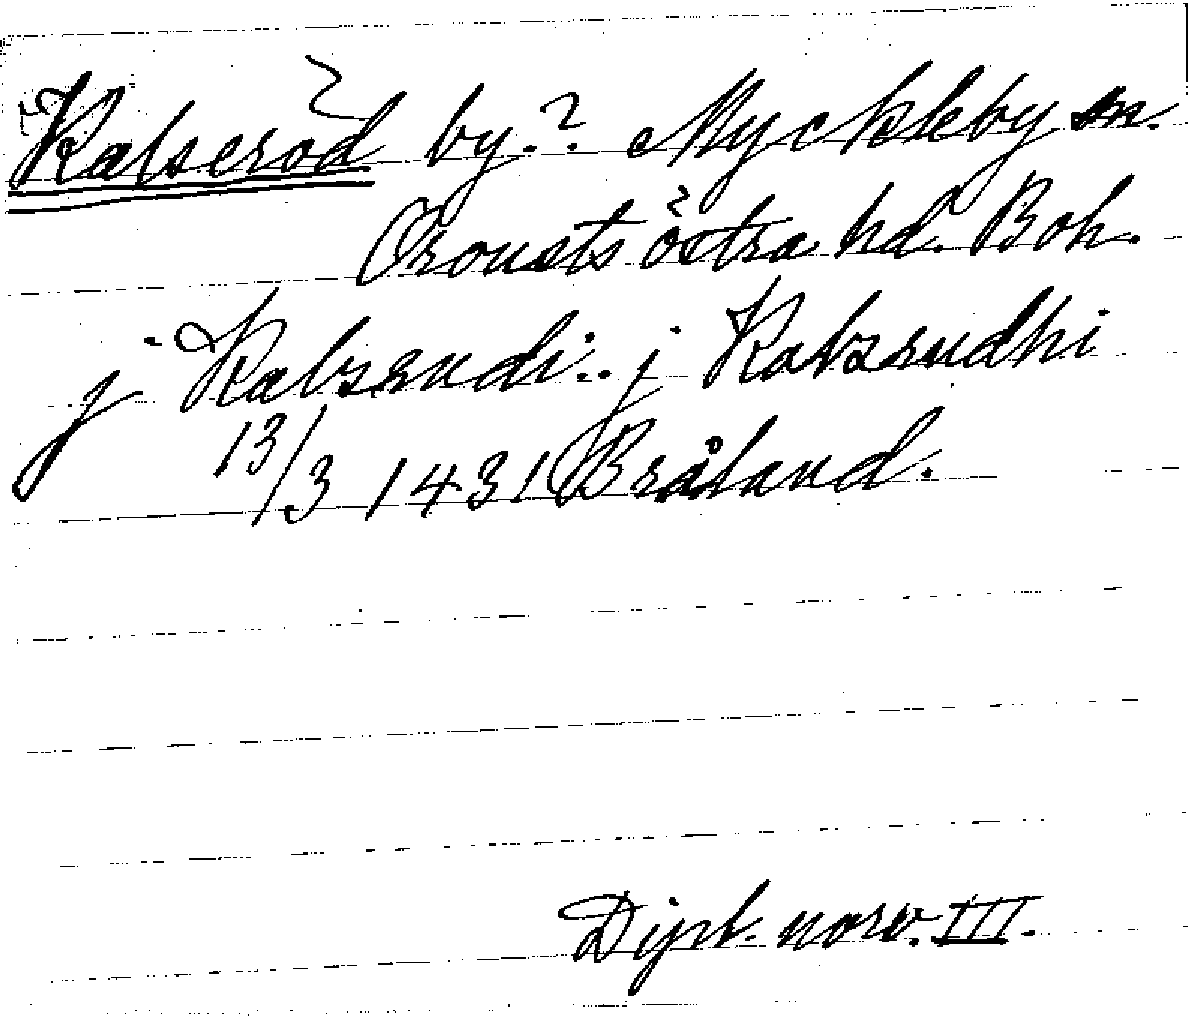 Kalseröd by.? Myckleby sn.
Orousts östra hd. Boh.
j Kalzrudi.. j Kalzrudhi
13/3 1431 Bråland.
Dipl. norv. III.